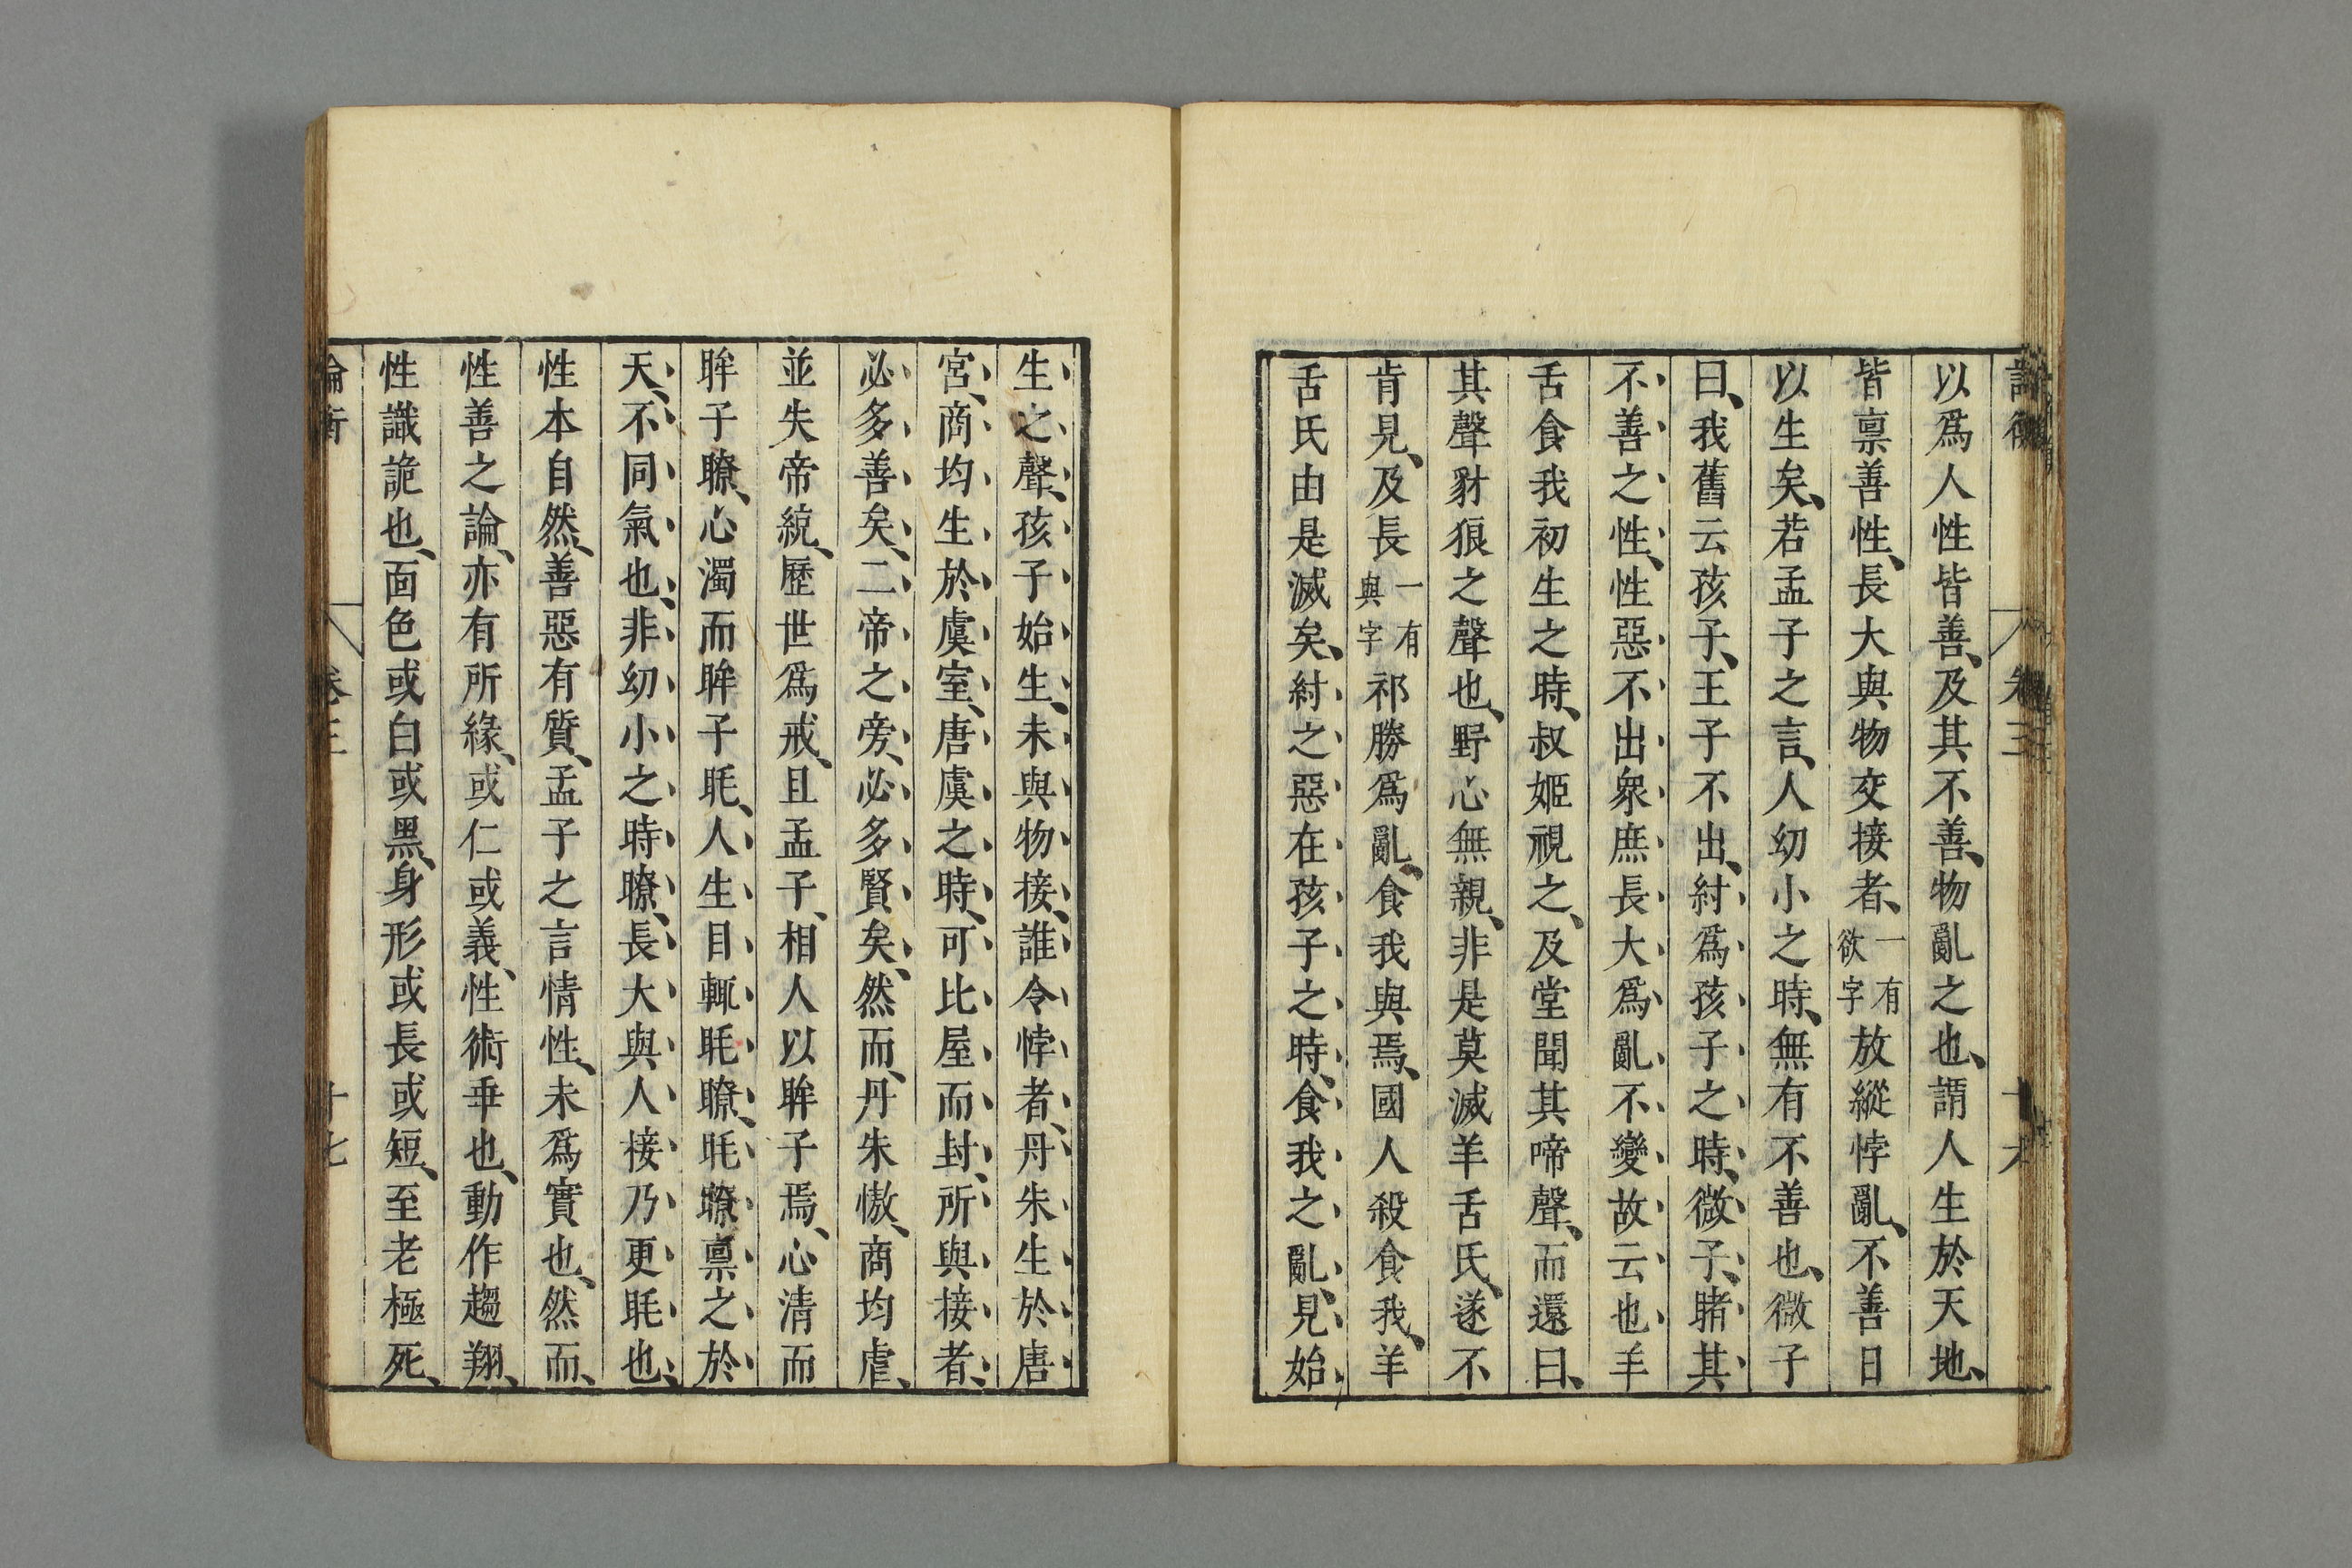 以爲人性皆善、及其不善、物亂之也、謂人生於天地、
皆禀善性、長大與物交接者、一有欲字放縱悖亂、不善日
以生矣、若孟子之言、人幼小之時、無有不善也、微子
曰、我舊云孩子、王子不出、紂爲孩子之時、微子、睹其
不善之性、性惡不出衆庶長大爲亂不變故云也羊
舌食我初生之時、叔姬視之、及堂聞其啼聲、而還曰、
其聲豺狼之聲也、野心無親、非是莫滅羊舌氏、遂不
肯見、及長一有與字祁勝爲亂、食我與焉、國人殺食我、羊
舌氏由是滅矣、紂之惡在孩子之時、食我之亂、見始
生之聲、孩子始生、未與物接、誰令悖者、丹朱生於唐
宮、商均生於虞室、唐虞之時、可比屋而封、所與接者、
必多善矣、二帝之旁、必多賢矣、然而、丹朱慠、商均虐、
並失帝統、歷世爲戒、且孟子、相人以眸子焉、心清而
眸子瞭、心濁而眸子眊、人生目輒眊瞭、眊瞭禀之於
天、不同氣也、非幼小之時瞭、長大與人接乃更眊也、
性本自然、善惡有質、孟子之言情性、未爲實也、然而、
性善之論、亦有所緣、或仁或義、性術乖也、動作趨翔、
性識詭也、面色或白或黑、身形或長或短、至老極死、
論衡 卷三 十七